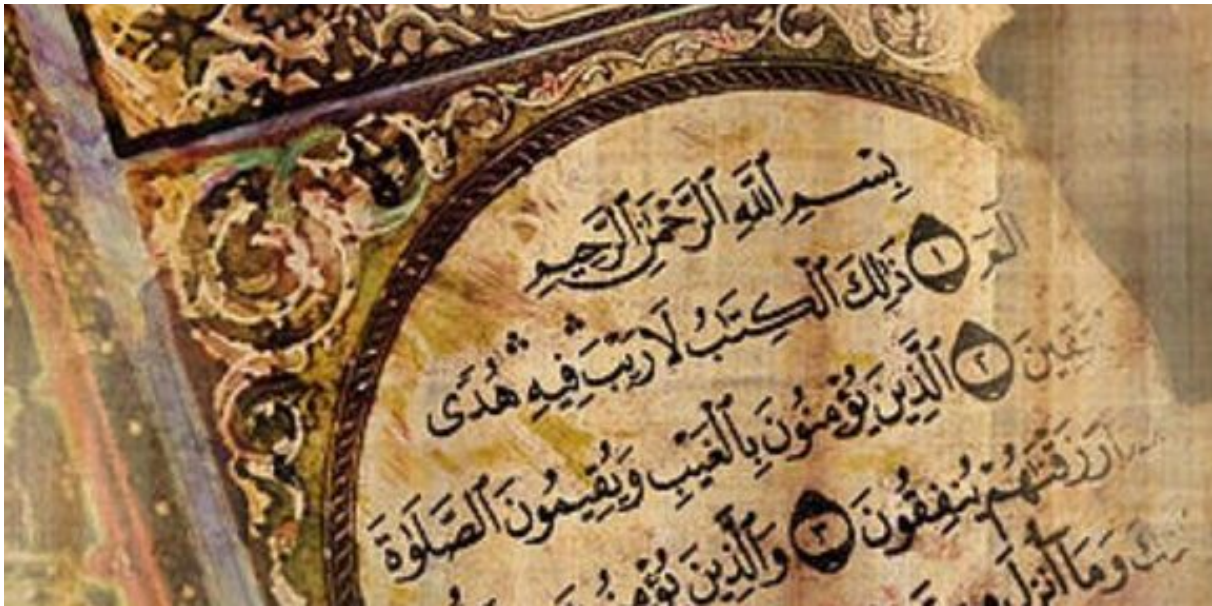 بِسْمِ ٱللَّهِ ٱلرَّحْمَٰنِ ٱلرَّحِيمِ
الٓمٓ ١ ذَٰلِكَ ٱلْكِتَٰبُ لَا رَيْبَ ۛ فِيهِ ۛ هُدًى
٢ ٱلَّذِينَ يُؤْمِنُونَ بِٱلْغَيْبِ وَيُقِيمُونَ ٱلصَّلَوٰةَ
رَزَقْنَٰهُمْ يُنفِقُونَ ٣ وَٱلَّذِينَ
وَمَآ أُنزِلَ